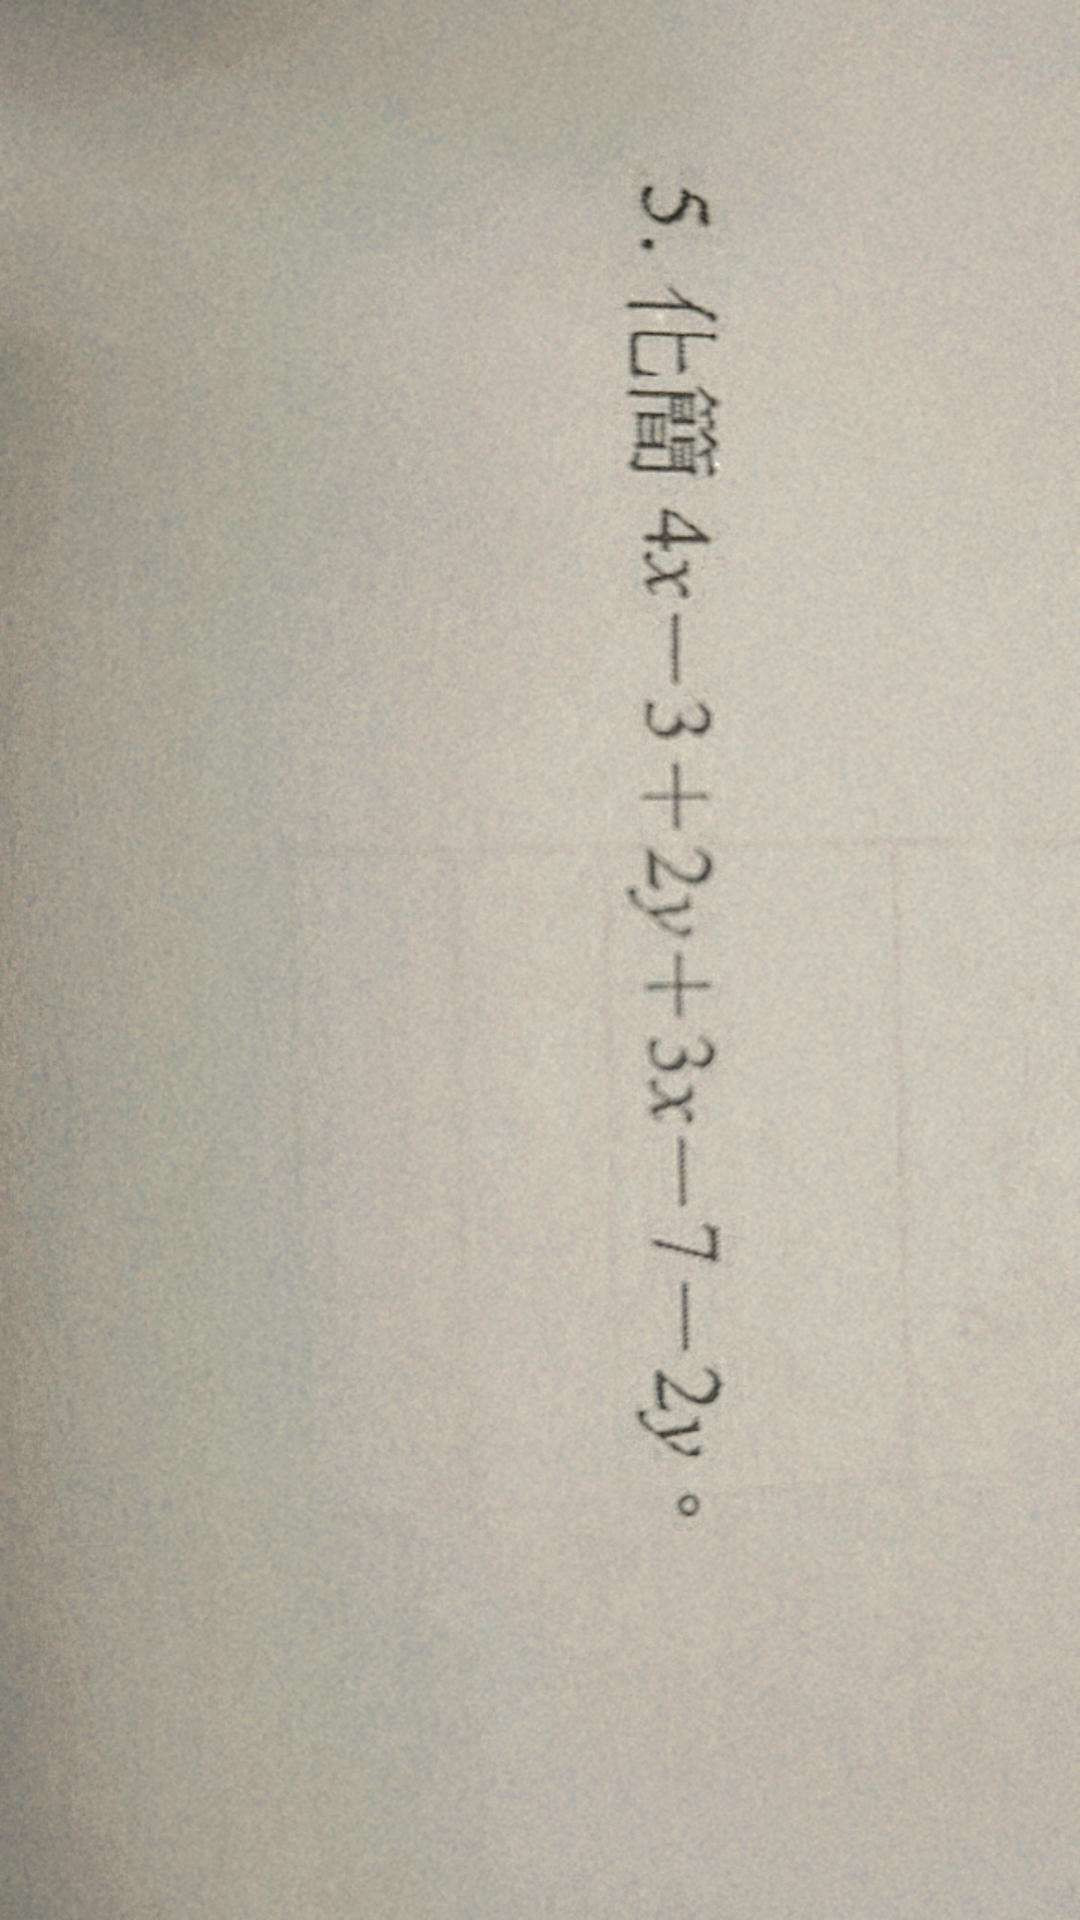 5. 化簡 4x－3＋2y＋3x－7－2y。